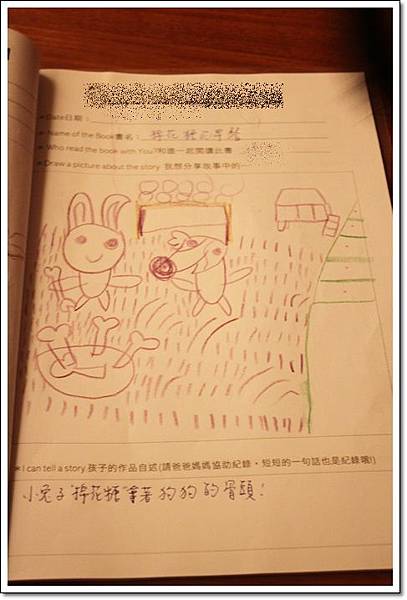 Date日期：
Name of the Book書名： 棉花糖
Who read the book with You?和誰一起閱讀此書
Draw a picture about the story 我想分享故事中的
I can tell a story 孩子的作品自述(請爸爸媽媽協助紀錄，短短的一句話也是紀錄哦!)
小兔子"棉花糖"拿著狗狗的骨頭！